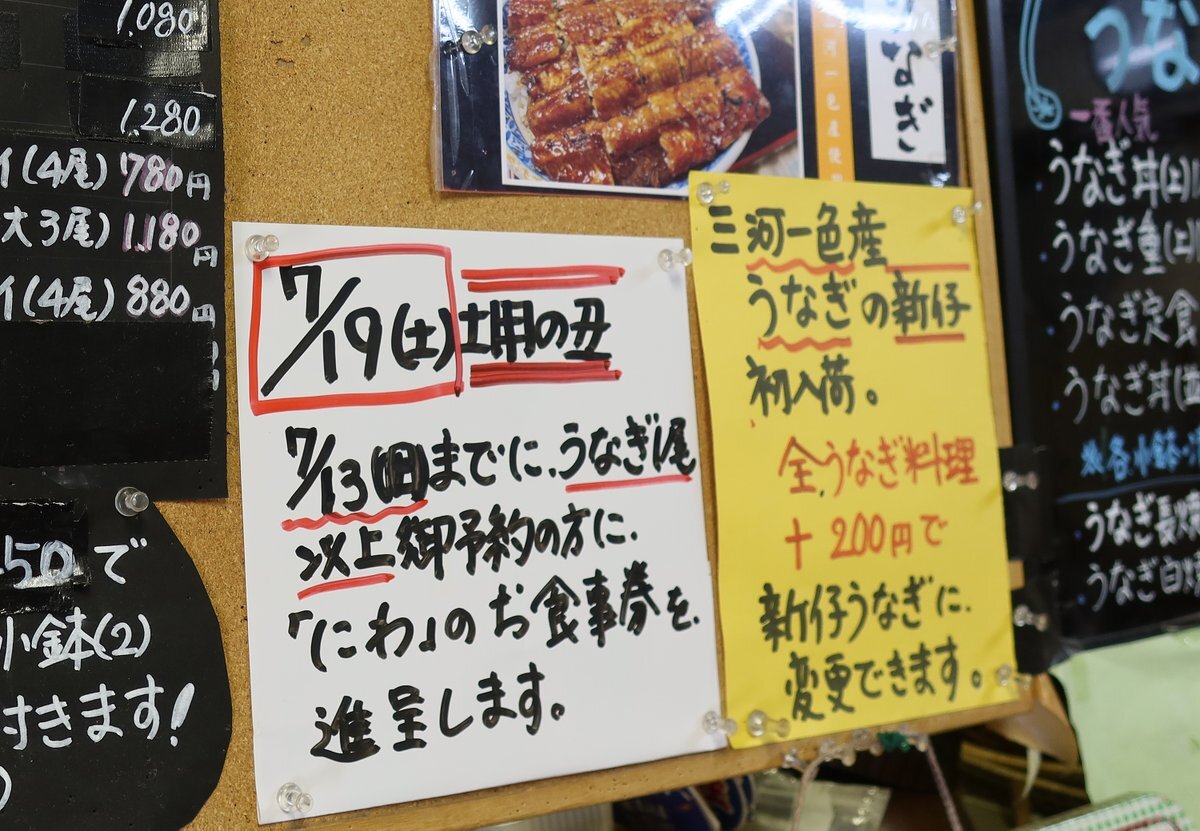 1,080
1,280
イ(4尾) 780円
大3尾) 1,180円
イ(4尾) 880円
50で
小鉢(2)
付きます!
なぎ
河一色産使
7/19(土)土用の丑
7/13(日)までに、うなぎ1尾
以上御予約の方に、
「にわ」のお食事券を、
進呈します。
三河一色産
うなぎの新仔
初入荷。
全うなぎ料理
+200円で
新仔うなぎに、
変更できます。
うな
一番人気
うなぎ丼(上)
うなぎ重(上)
うなぎ定食
うなぎ丼(並
※各小鉢・
うなぎ長焼
うなぎ白焼